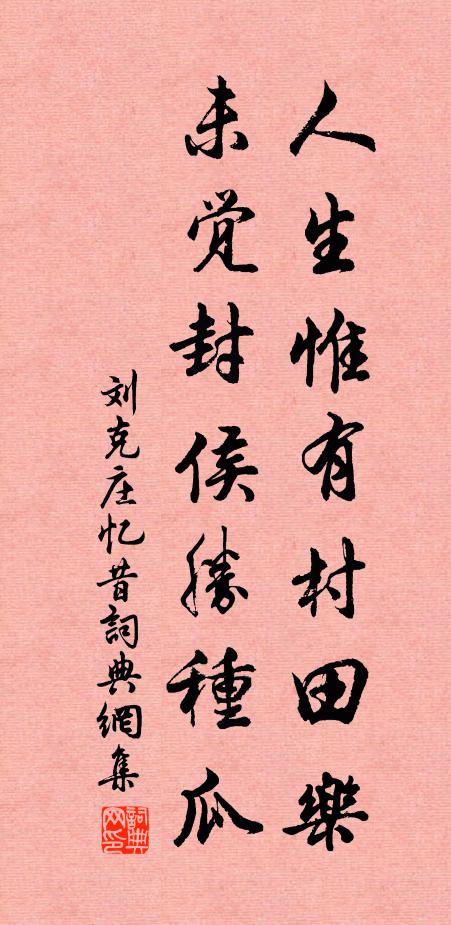 人生惟有村田樂
未觉封侯勝種瓜
刘克庄忆昔詞典網集
詞典网印